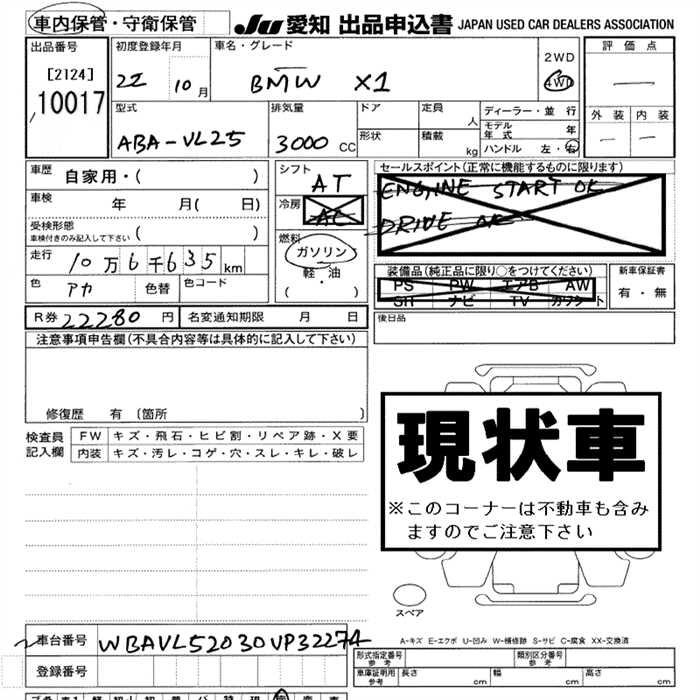 車内保管・守衛保管 JU 愛知 出品申込書 JAPAN USED CAR DEALERS ASSOCIATION
出品番号 初度登録年月 車名・グレード 評価点
[2124] 22 10月 BMW X1 2WD
10017 4WD
型式 排気量 ドア 定員 人 ディーラー・並行 外装 内装
モデル年式 年
ABA-VL25 3000 CC 形状 積載 kg ハンドル 左・右
車歴 自家用・( ) シフト AT セールスポイント(正常に機能するものに限ります)
車検 年 月( 日) 冷房 AC ENGINE START OK
受検形態 車検付きのみ記入して下さい ( ) DRIVE OK
走行 10万6千635km 燃料 ガソリン 装備品(純正品に限り○をつけてください) 新車保証書
色 アカ 色替 色コード 軽・油 PS PW エアB AW 有・無
( ) SH ナビ TV カワシート
R券 22280円 名変通知期限 月 日 後日品
注意事項申告欄(不具合内容等は具体的に記入して下さい)
修復歴 有 〔箇所 〕
検査員記入欄 FW キズ・飛石・ヒビ割・リペア跡・X要
内装 キズ・汚レ・コゲ・穴・スレ・キレ・破レ
現状車
※このコーナーは不動車も含み
ますのでご注意下さい
スペア
A-キズ E-エクボ U-凹み W-補修跡 S-サビ C-腐食 XX-交換済
車台番号 WBAVL52030VP32274
登録番号
形式指定番号 参考 類別区分番号 参考
車庫証明用 参考 長さ cm 幅 cm 高さ cm